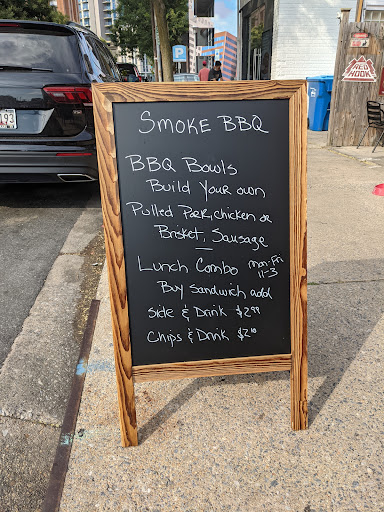 SMOKE BBQ
BBQ Bowls
Build Your own
Pulled Pork, chicken or
Brisket, Sausage
Lunch Combo Mon-Fri
11-3
Buy Sandwich add
Side & Drink $2.99
Chips & Drink
P
RED
HOOK